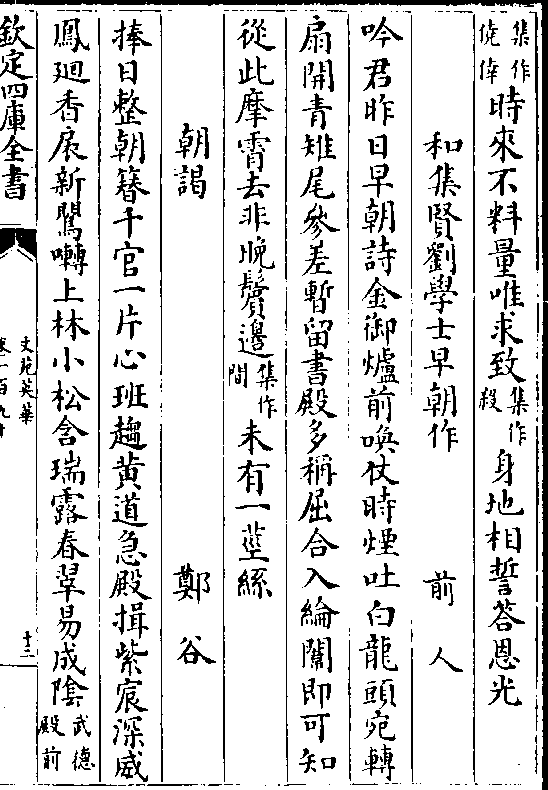 集作僥倖時來不料量唯求致集作殺身地相誓答恩光
和集賢劉學士早朝作　前人
吟君昨日早朝詩金御爐前喚仗時煙吐白龍頭宛轉
扇開青雉尾參差暫留書殿多稱屈合入綸闈即可知
從此摩霄去非晚鬢邊集作間未有一莖絲
朝謁　鄭谷
捧日整朝簪千官一片心班趨黄道急殿揖紫宸深威
鳳廻香扆新鶯囀上林小松含瑞露春翠易成陰武德殿前
欽定四庫全書
文苑英華
卷一百九十
十二